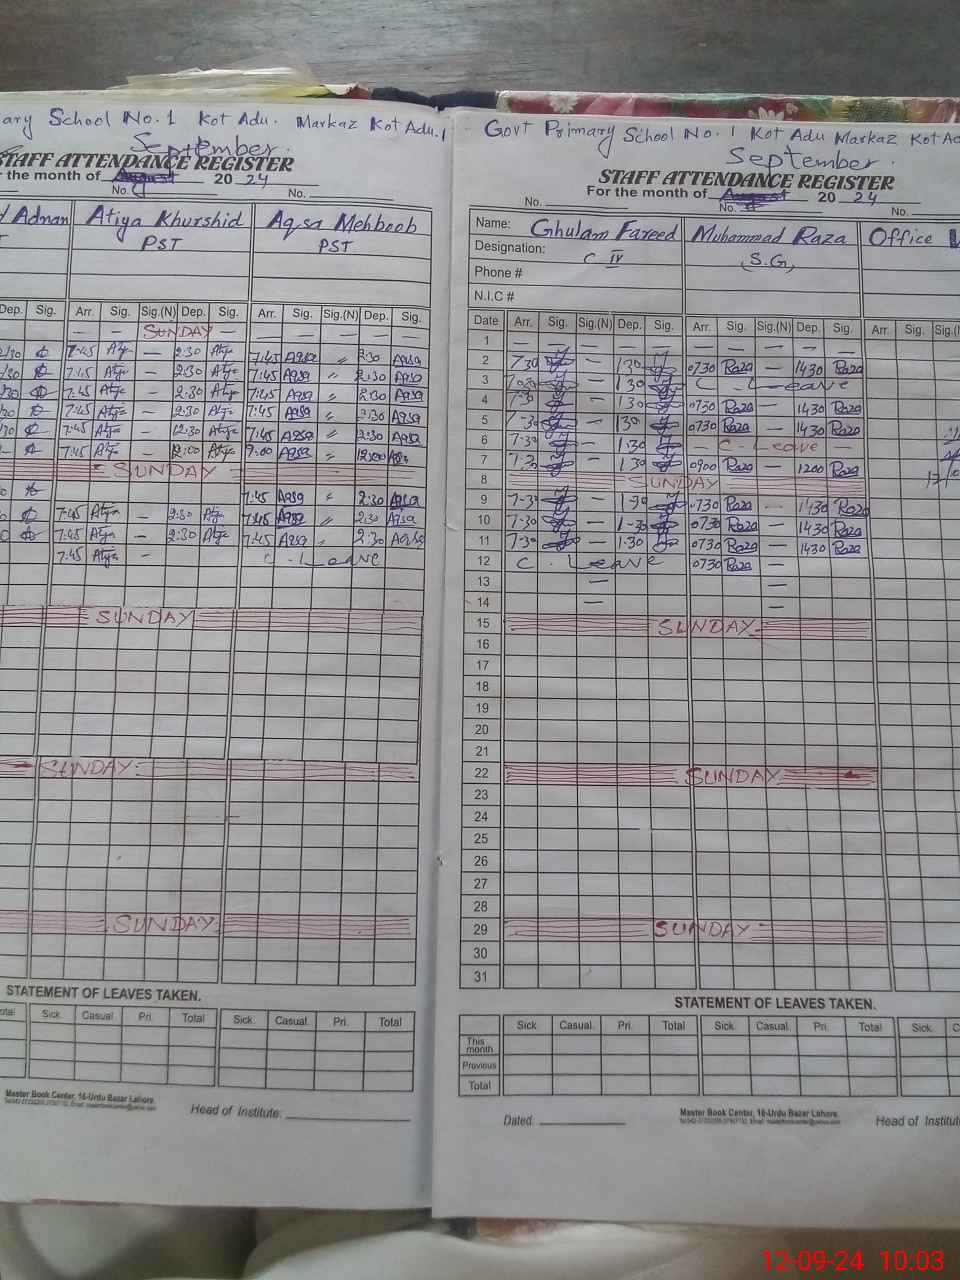 ary School No. 1 Kot Adu. Markaz Kot Adu.
September
STAFF ATTENDANCE REGISTER
r the month of August 20 24
No. No.
Adnan Atiya Khurshid Aqsa Mehboob
PST PST
Dep. Sig. Arr. Sig. Sig.(N) Dep. Sig. Arr. Sig. Sig.(N) Dep. Sig.
— — SUNDAY — — — — —
7:45 Atiya — 2:30 Atiya 7:45 Aqsa " 2:30 Aqsa
7:45 Atiya — 2:30 Atiya 7:45 Aqsa " 2:30 Aqsa
7:45 Atiya — 2:30 Atiya 7:45 Aqsa " 2:30 Aqsa
7:45 Atiya — 2:30 Atiya 7:45 Aqsa 2:30 Aqsa
7:45 Atiya — 12:30 Atiya 7:45 Aqsa " 2:30 Aqsa
7:45 Atiya — 12:00 Atiya 7:00 Aqsa " 12:00 Aqsa
SUNDAY
7:45 Aqsa " 2:30 Aqsa
7:45 Atiya — 2:30 Atiya 7:45 Aqsa " 2:30 Aqsa
7:45 Atiya — 2:30 Atiya 7:45 Aqsa " 2:30 Aqsa
7:45 Atiya — C. Leave
SUNDAY
SUNDAY
SUNDAY
STATEMENT OF LEAVES TAKEN.
otal Sick. Casual. Pri. Total Sick. Casual. Pri. Total
Master Book Center, 16-Urdu Bazar Lahore.
Head of Institute:
Govt Primary School No. 1 Kot Adu Markaz Kot Ad
September.
STAFF ATTENDANCE REGISTER
For the month of August 20 24
No. No. No.
Name: Ghulam Fareed Muhammad Raza Office
Designation: C IV (S.G)
Phone #
N.I.C #
Date Arr. Sig. Sig.(N) Dep. Sig. Arr. Sig. Sig.(N) Dep. Sig. Arr. Sig. Sig.(N
1 — — — — — — — — — —
2 7:30 — 1:30 0730 Raza — 1430 Raza
3 7:30 — 1:30 C. Leave
4 7:30 — 1:30 0730 Raza — 1430 Raza
5 7:30 — 1:30 0730 Raza — 1430 Raza
6 7:30 — 1:30 — C. Leave —
7 7:30 — 1:30 0900 Raza — 1200 Raza
8 SUNDAY
9 7:30 — 1:30 0730 Raza — 1430 Raza
10 7:30 — 1:30 0730 Raza — 1430 Raza
11 7:30 — 1:30 0730 Raza — 1430 Raza
12 C. Leave 0730 Raza —
13 — —
14 — —
15 SUNDAY
16
17
18
19
20
21
22 SUNDAY
23
24
25
26
27
28
29 SUNDAY
30
31
STATEMENT OF LEAVES TAKEN.
Sick Casual. Pri. Total Sick. Casual. Pri. Total Sick C
This month
Previous
Total
Dated: Master Book Center, 16-Urdu Bazar Lahore. Head of Institut
12-09-24 10:03